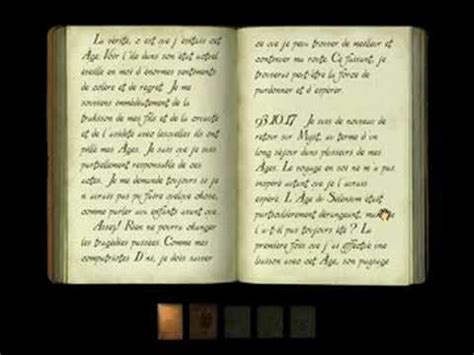 La vérité, c'est que j'évitais cet
Age. Voir l'île dans son état actuel
éveille en moi d'énormes sentiments
de colère et de regret. Je me
souviens immédiatement de la
trahison de mes fils et de la cruauté
et de l'avidité avec lesquelles ils ont
pillé mes Ages. Je sais que je suis
partiellement responsable de ces
actes. Je me demande toujours si je
n'aurais pas pu faire quelque chose,
comme parler aux enfants avant que.
Assez! Rien ne pourra changer
les tragédies passées. Comme mes
compatriotes D'ni, je dois laisser
ce que je peux trouver de meilleur et
continuer ma route. Ce faisant, je
trouverai peut-être la force de
pardonner et d'espérer.
93.10.17 Je suis de nouveau de
retour sur Myst, au terme d'un
long séjour dans plusieurs de mes
Ages. Le voyage en soi ne m'a pas
autant que je l'aurais
espéré. L'Age de était
particulièrement dérangeant, mais ne
l'a-t-il pas toujours été ? La
première fois que j'ai effectué une
liaison avec cet Age, son paysage